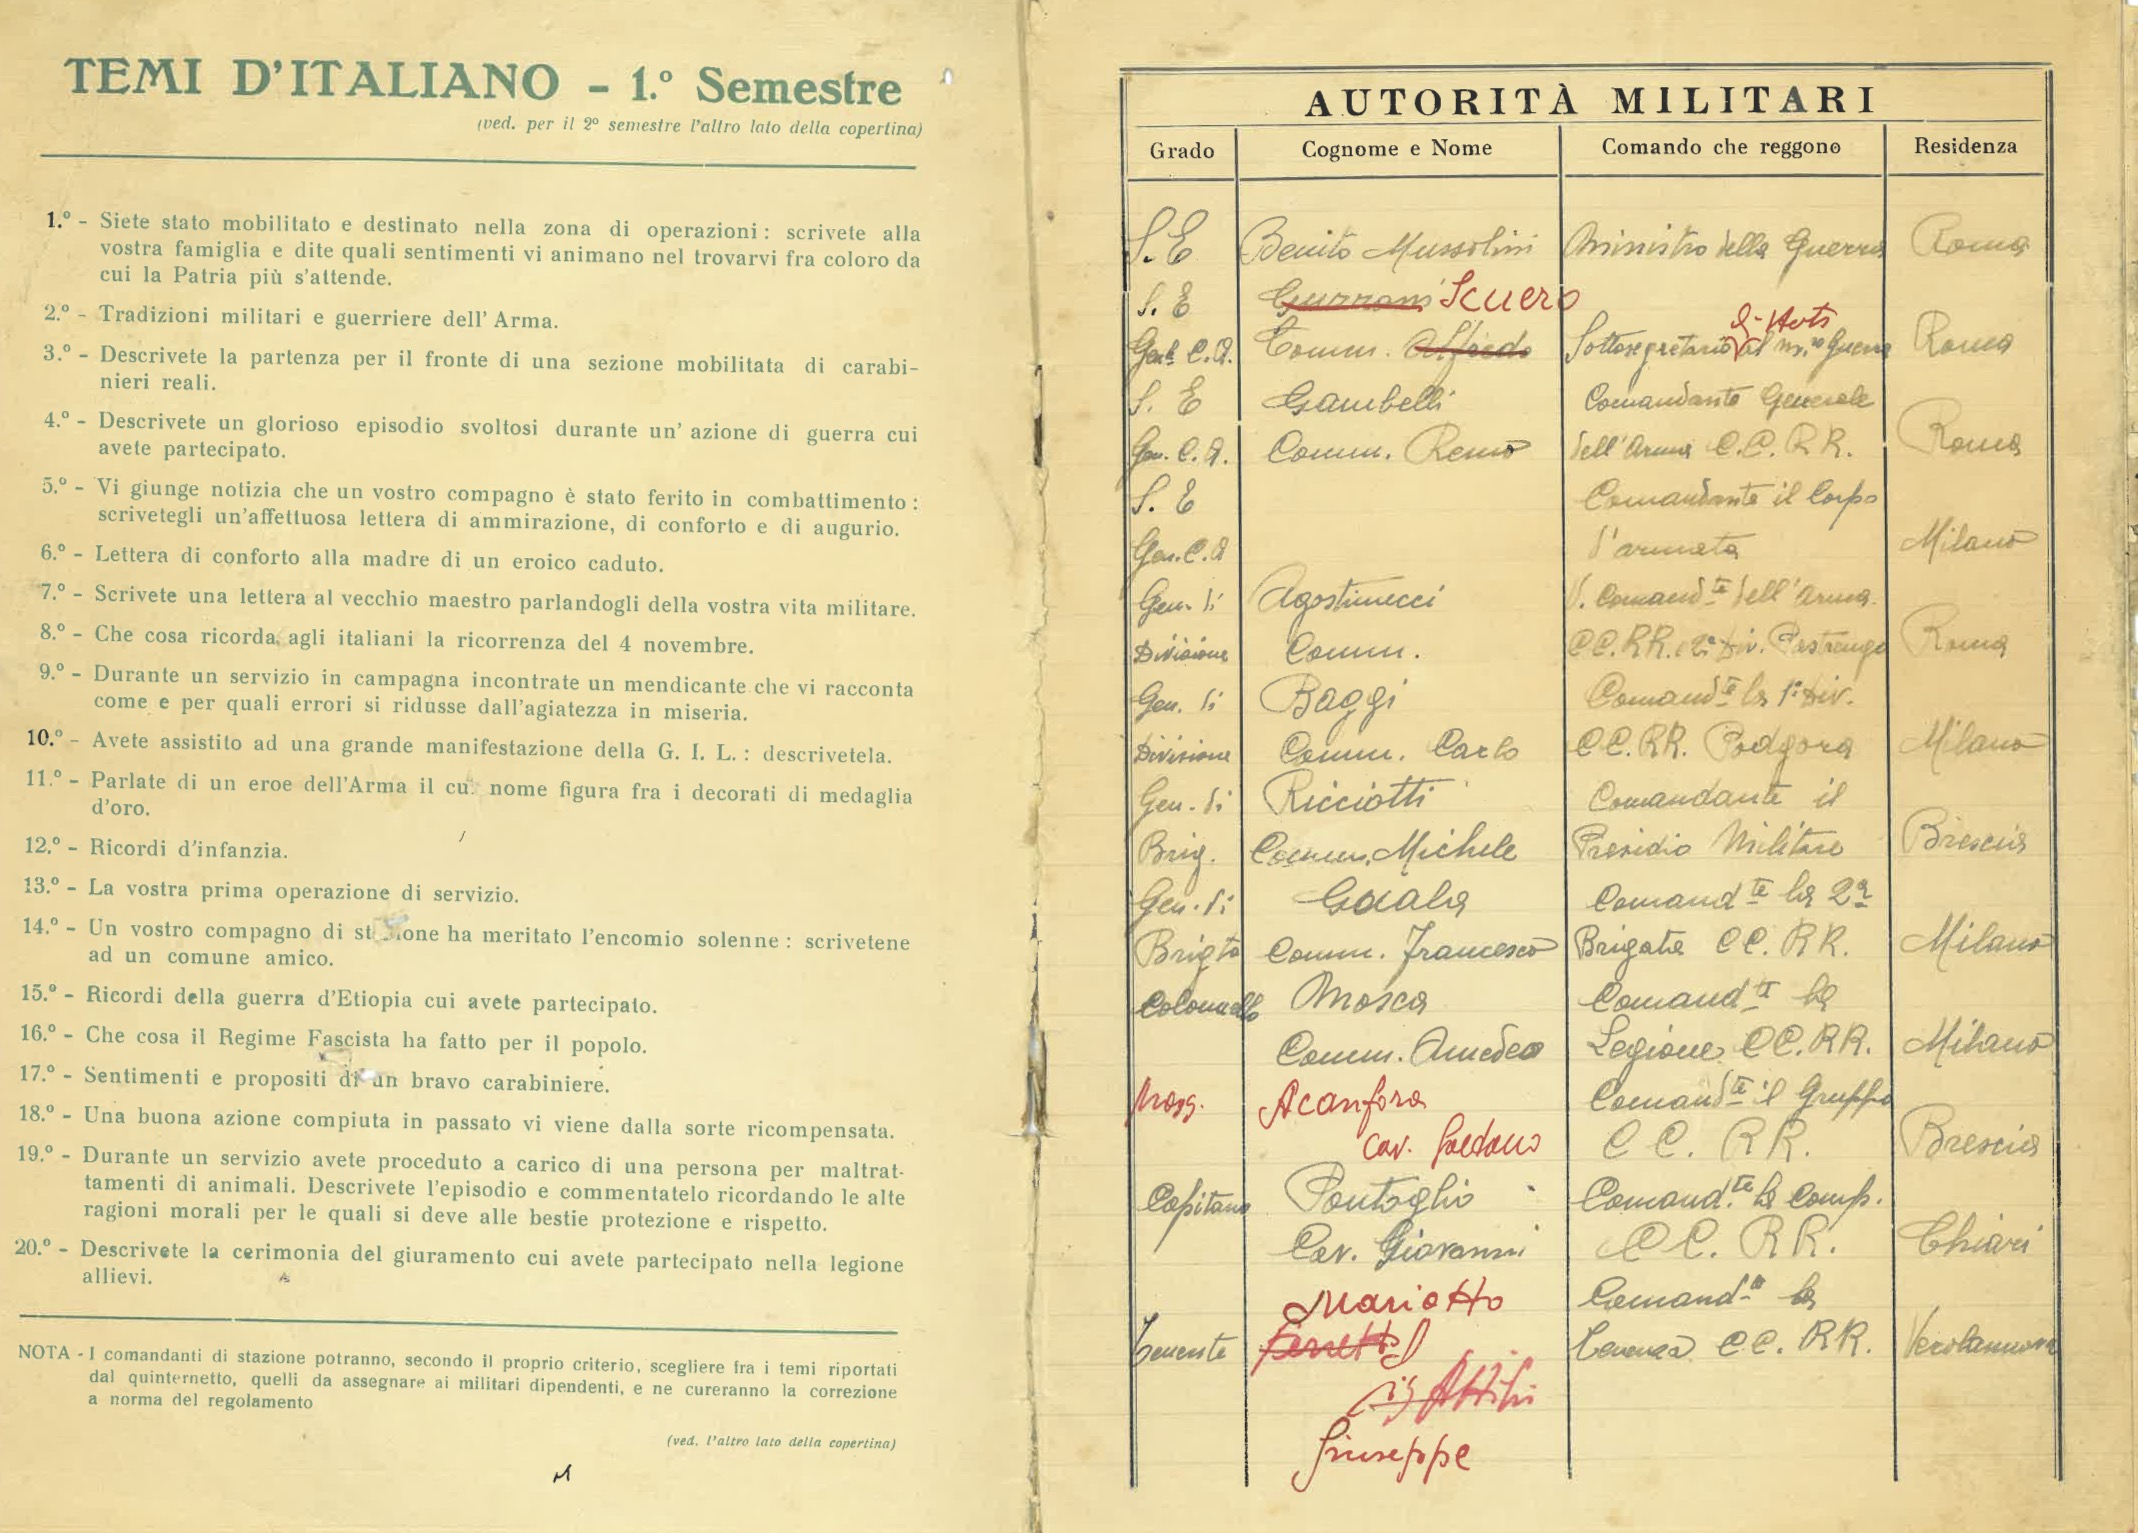 TEMI D'ITALIANO - 1.° Semestre
(ved. per il 2° semestre l'altro lato della copertina)
1.° - Siete stato mobilitato e destinato nella zona di operazioni: scrivete alla
vostra famiglia e dite quali sentimenti vi animano nel trovarvi fra coloro da
cui la Patria più s'attende.
2.° - Tradizioni militari e guerriere dell' Arma.
3.° - Descrivete la partenza per il fronte di una sezione mobilitata di carabi-
nieri reali.
4.° - Descrivete un glorioso episodio svoltosi durante un' azione di guerra cui
avete partecipato.
5.° - Vi giunge notizia che un vostro compagno è stato ferito in combattimento:
scrivetegli un'affettuosa lettera di ammirazione, di conforto e di augurio.
6.° - Lettera di conforto alla madre di un eroico caduto.
7.° - Scrivete una lettera al vecchio maestro parlandogli della vostra vita militare.
8.° - Che cosa ricorda agli italiani la ricorrenza del 4 novembre.
9.° - Durante un servizio in campagna incontrate un mendicante che vi racconta
come e per quali errori si ridusse dall'agiatezza in miseria.
10.° - Avete assistito ad una grande manifestazione della G. I. L.: descrivetela.
11.° - Parlate di un eroe dell'Arma il cui nome figura fra i decorati di medaglia
d'oro.
12.° - Ricordi d'infanzia.
13.° - La vostra prima operazione di servizio.
14.° - Un vostro compagno di stazione ha meritato l'encomio solenne: scrivetene
ad un comune amico.
15.° - Ricordi della guerra d'Etiopia cui avete partecipato.
16.° - Che cosa il Regime Fascista ha fatto per il popolo.
17.° - Sentimenti e propositi di un bravo carabiniere.
18.° - Una buona azione compiuta in passato vi viene dalla sorte ricompensata.
19.° - Durante un servizio avete proceduto a carico di una persona per maltrat-
tamenti di animali. Descrivete l'episodio e commentatelo ricordando le alte
ragioni morali per le quali si deve alle bestie protezione e rispetto.
20.° - Descrivete la cerimonia del giuramento cui avete partecipato nella legione
allievi.
NOTA - I comandanti di stazione potranno, secondo il proprio criterio, scegliere fra i temi riportati
dal quinternetto, quelli da assegnare ai militari dipendenti, e ne cureranno la correzione
a norma del regolamento
(ved. l'altro lato della copertina)
AUTORITÀ MILITARI
Grado Cognome e Nome Comando che reggono Residenza
S. E Benito Mussolini Ministro della Guerra Roma
S. E Guzzoni Scuero
Gen.le C.A. Comm. Alfredo Sottosegretario al M.ro Guerra Roma
S. E Gambelli Comandante Generale
Gen. C. A. Comm. Remo dell'Arma C.C. R R. Roma
S. E Comandante il Corpo
Gen. C. A d'armata Milano
Gen. di Agostinucci V. Comand.te dell'Arma
Divisione Comm. CC. RR. e 2ª Div. Pastrengo Roma
Gen. di Baggi Comand.te la 1ª Div.
Divisione Comm. Carlo CC. RR. Podgora Milano
Gen. di Ricciotti Comandante il
Brig. Comm. Michele Presidio Militare Brescia
Gen. di Comand.te la 2ª
Brigta Comm. Francesco Brigata CC. RR. Milano
Colonnello Mosca Comand.te la
Comm. Amedeo Legione CC. RR. Milano
Magg. Acanfora Comand.te il Gruppo
Cav. Gaetano CC. RR. Brescia
Capitano Pontoglio Comand.te la Comp.
Cav. Giovanni CC. RR. Chiari
Mariotto Comand.te la
Tenente Ferretti Tenenza CC. RR. Verolanuova
Attilio
Giuseppe